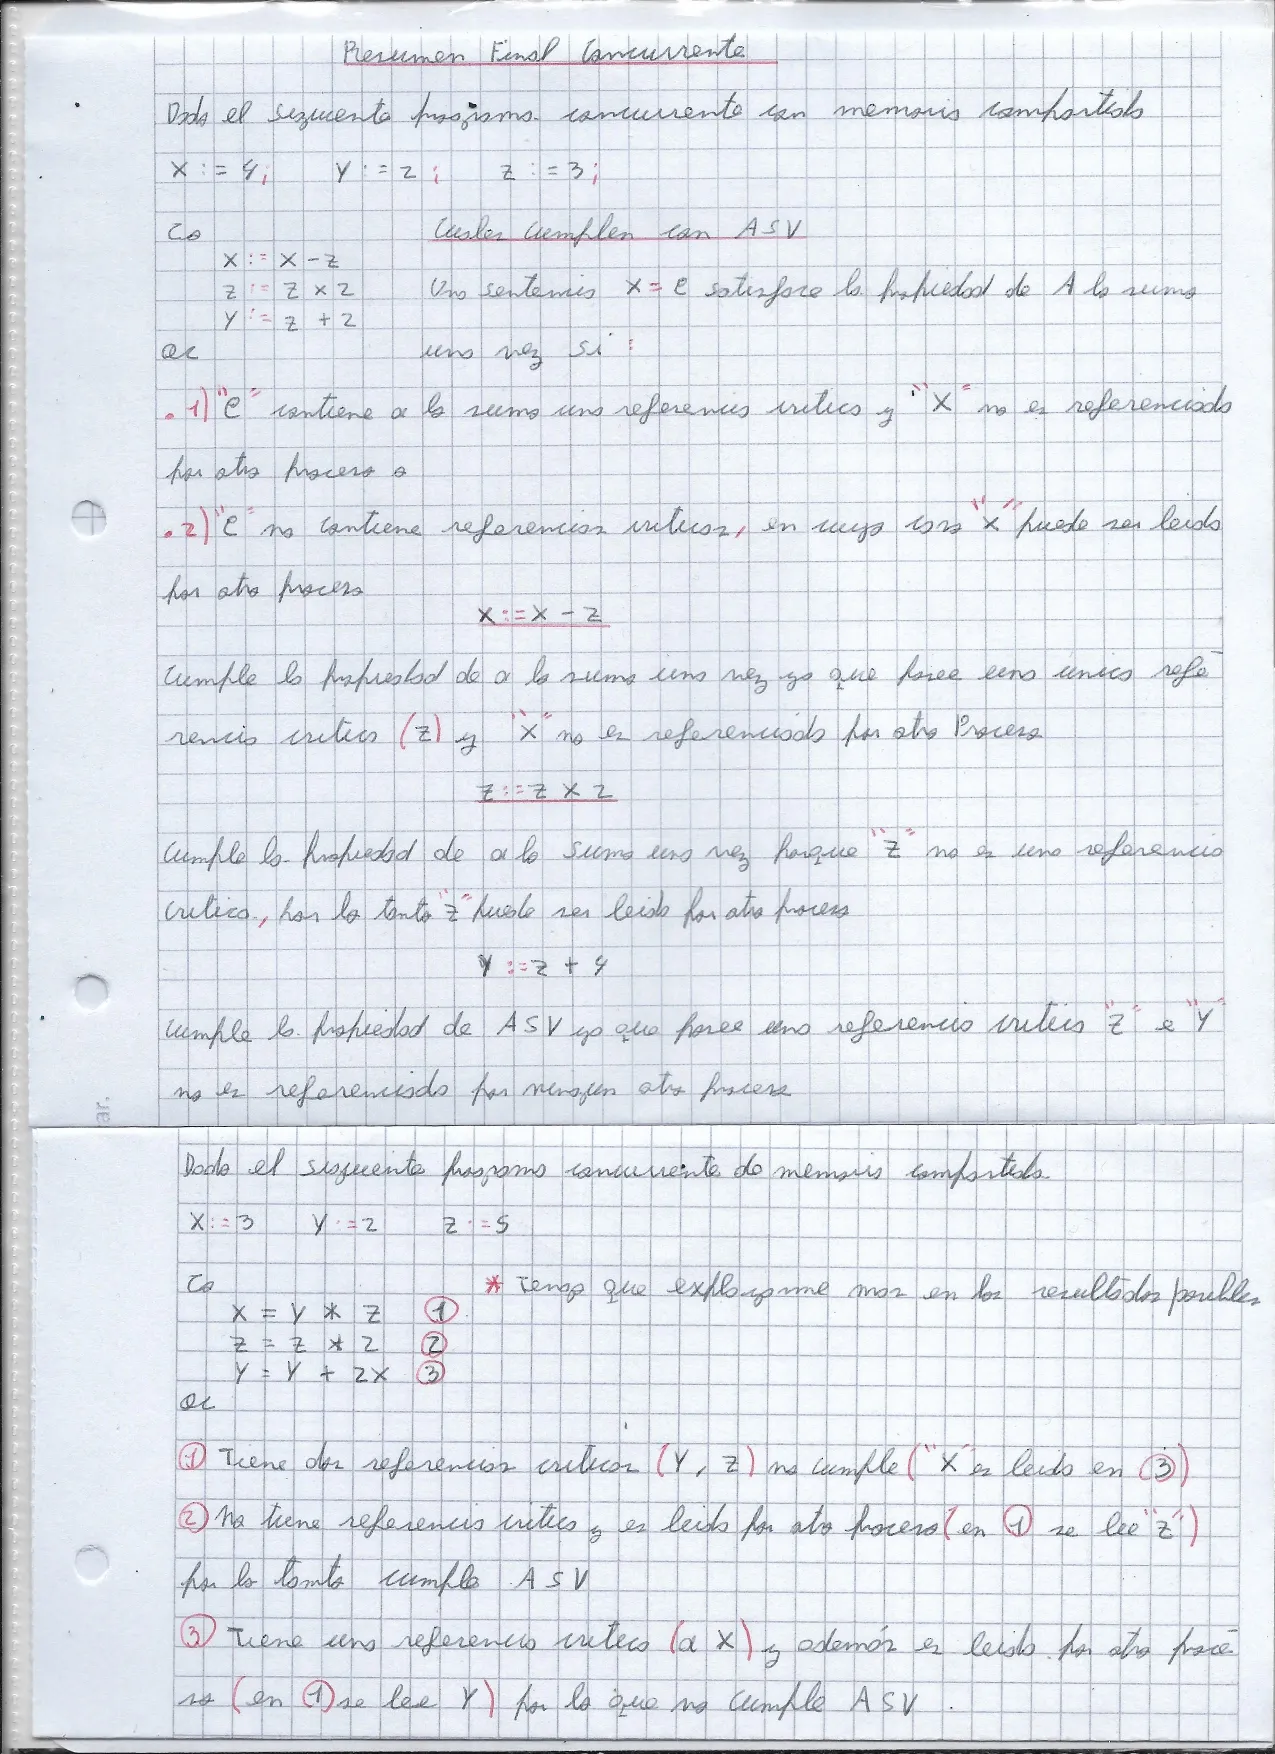 Resumen Final Concurrente
Dado el siguiente programa concurrente con memoria compartida
X := 4; Y := 2; Z := 3;
Co Cuales cumplen con ASV
X := X - Z
Z := Z x 2 Una sentencia X = e satisface la propiedad de A lo sumo
Y := Z + 2
oc una vez si :
. 1) "e" contiene a lo sumo una referencia critica y "X" no es referenciada
por otro proceso o
. 2) "e" no contiene referencias criticas, en cuyo caso "x" puede ser leido
por otro proceso
X := X - Z
Cumple la propiedad de a lo sumo una vez ya que posee una unica refe
rencia critica (Z) y "X" no es referenciado por otro Proceso
Z := Z x 2
Cumple la propiedad de a lo sumo una vez porque "Z" no es una referencia
critica, por lo tanto "z" puede ser leido por otro proceso
Y := Z + 4
Cumple la propiedad de ASV ya que posee una referencia critica "Z" e "Y"
no es referenciado por ningun otro proceso
ar.
Dado el siguiente programa concurrente de memoria compartida
X := 3 Y := 2 Z := 5
Co * Tengo que explayarme mas en los resultados posibles
X = Y * Z ①
Z = Z * 2 ②
Y = Y + 2X ③
oc
① Tiene dos referencias criticas (Y, Z) no cumple ("X" es leido en ③)
② No tiene referencia critica y es leido por otro proceso (en ① se lee "z")
por lo tanto cumple ASV
③ Tiene una referencia critica (a X) y además es leido por otro proce
so (en ① se lee Y) por lo que no cumple ASV .